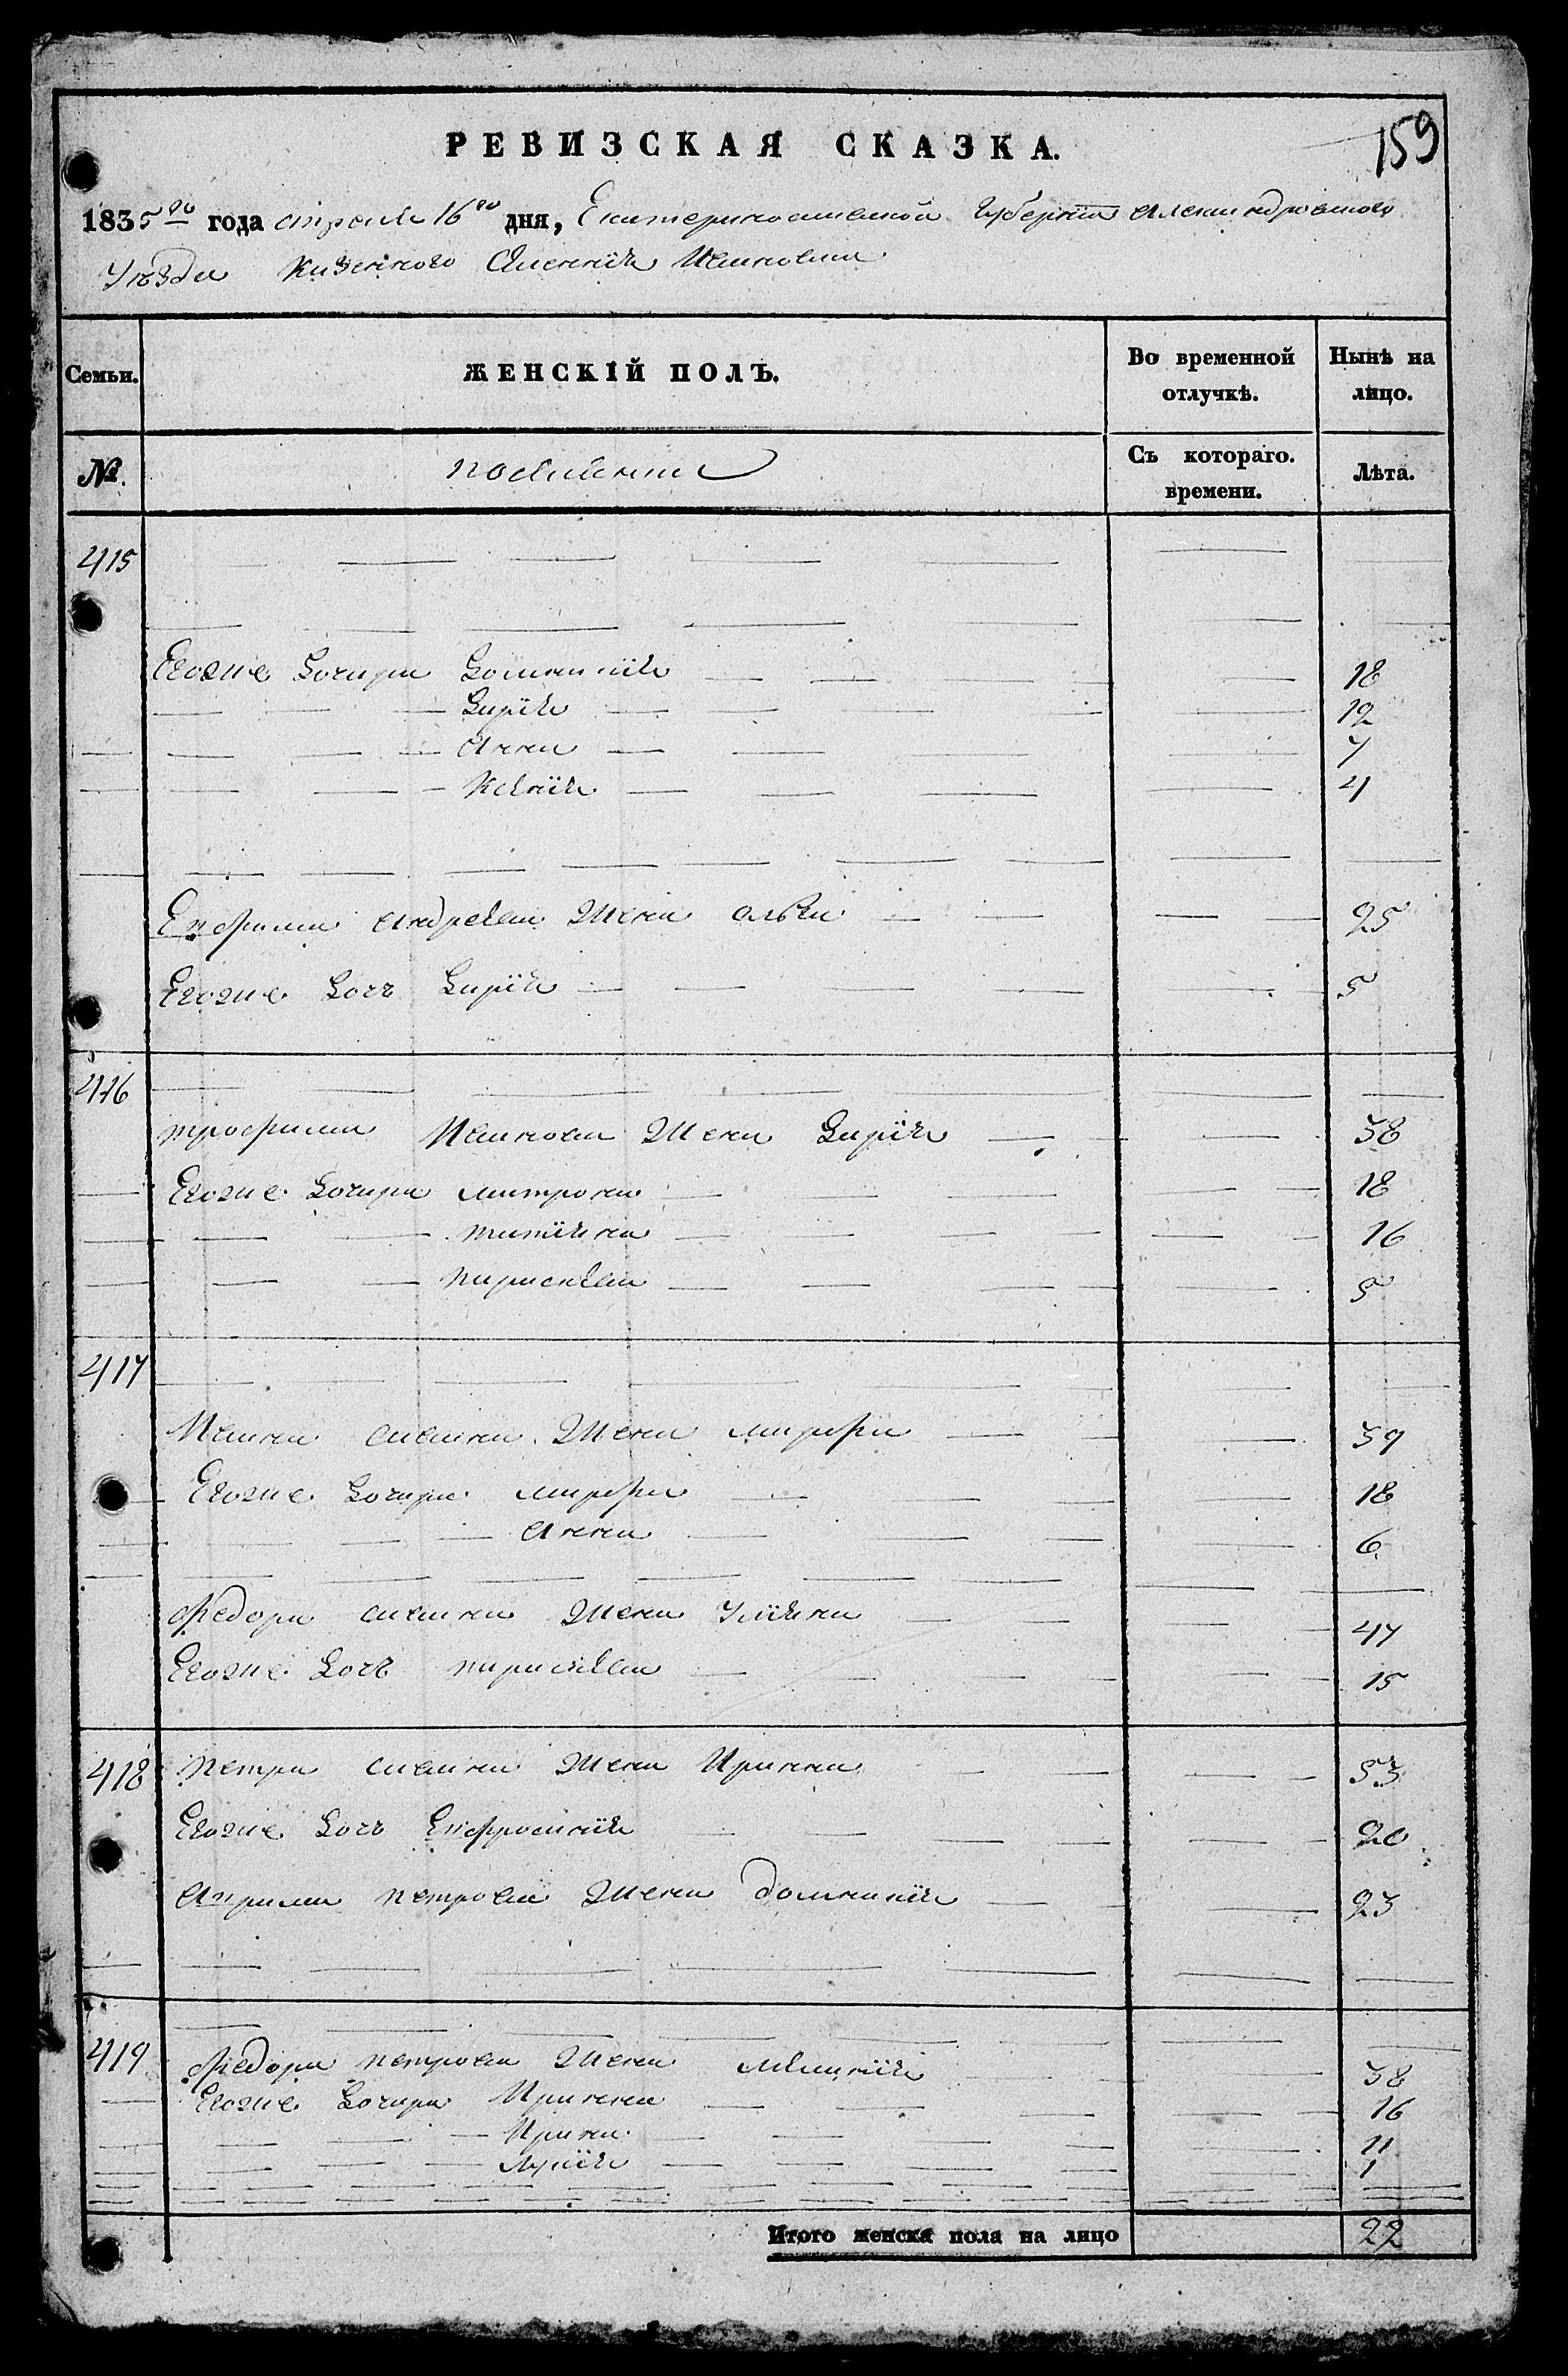 159
РЕВИЗСКАЯ СКАЗКА.
1835го года апреля 16го дня, Екатеринославской губернии Александровского
уезда казенного селения Ивановки
Семьи. ЖЕНСКІЙ ПОЛЪ. Во временной отлучкѣ. Нынѣ на лицо.
№. Съ котораго. времени. Лѣта.
415
Егоже дочери Домникія 18
Дарія 12
Анна 7
Ксенія 4
Ефрима Андреева жена 25
Егоже дочь Дарія 5
416
Трофима Иванова жена Дарія 38
Егоже дочери Матрона 18
Татіяна 16
Параскева 5
417
Ивана Савина жена Марфа 39
Егоже дочери Марфа 18
Анна 6
Федора Савина жена Уліяна 47
Егоже дочь Параскева 15
418 Петра Савина жена Иринна 53
Егоже дочь Ефросинія 20
петрова жена Домникія 23
419 Федора петрова жена Меланія 38
Егоже дочери Иринна 16
Ирина 11
Марія 1
Итого женска пола на лицо 22